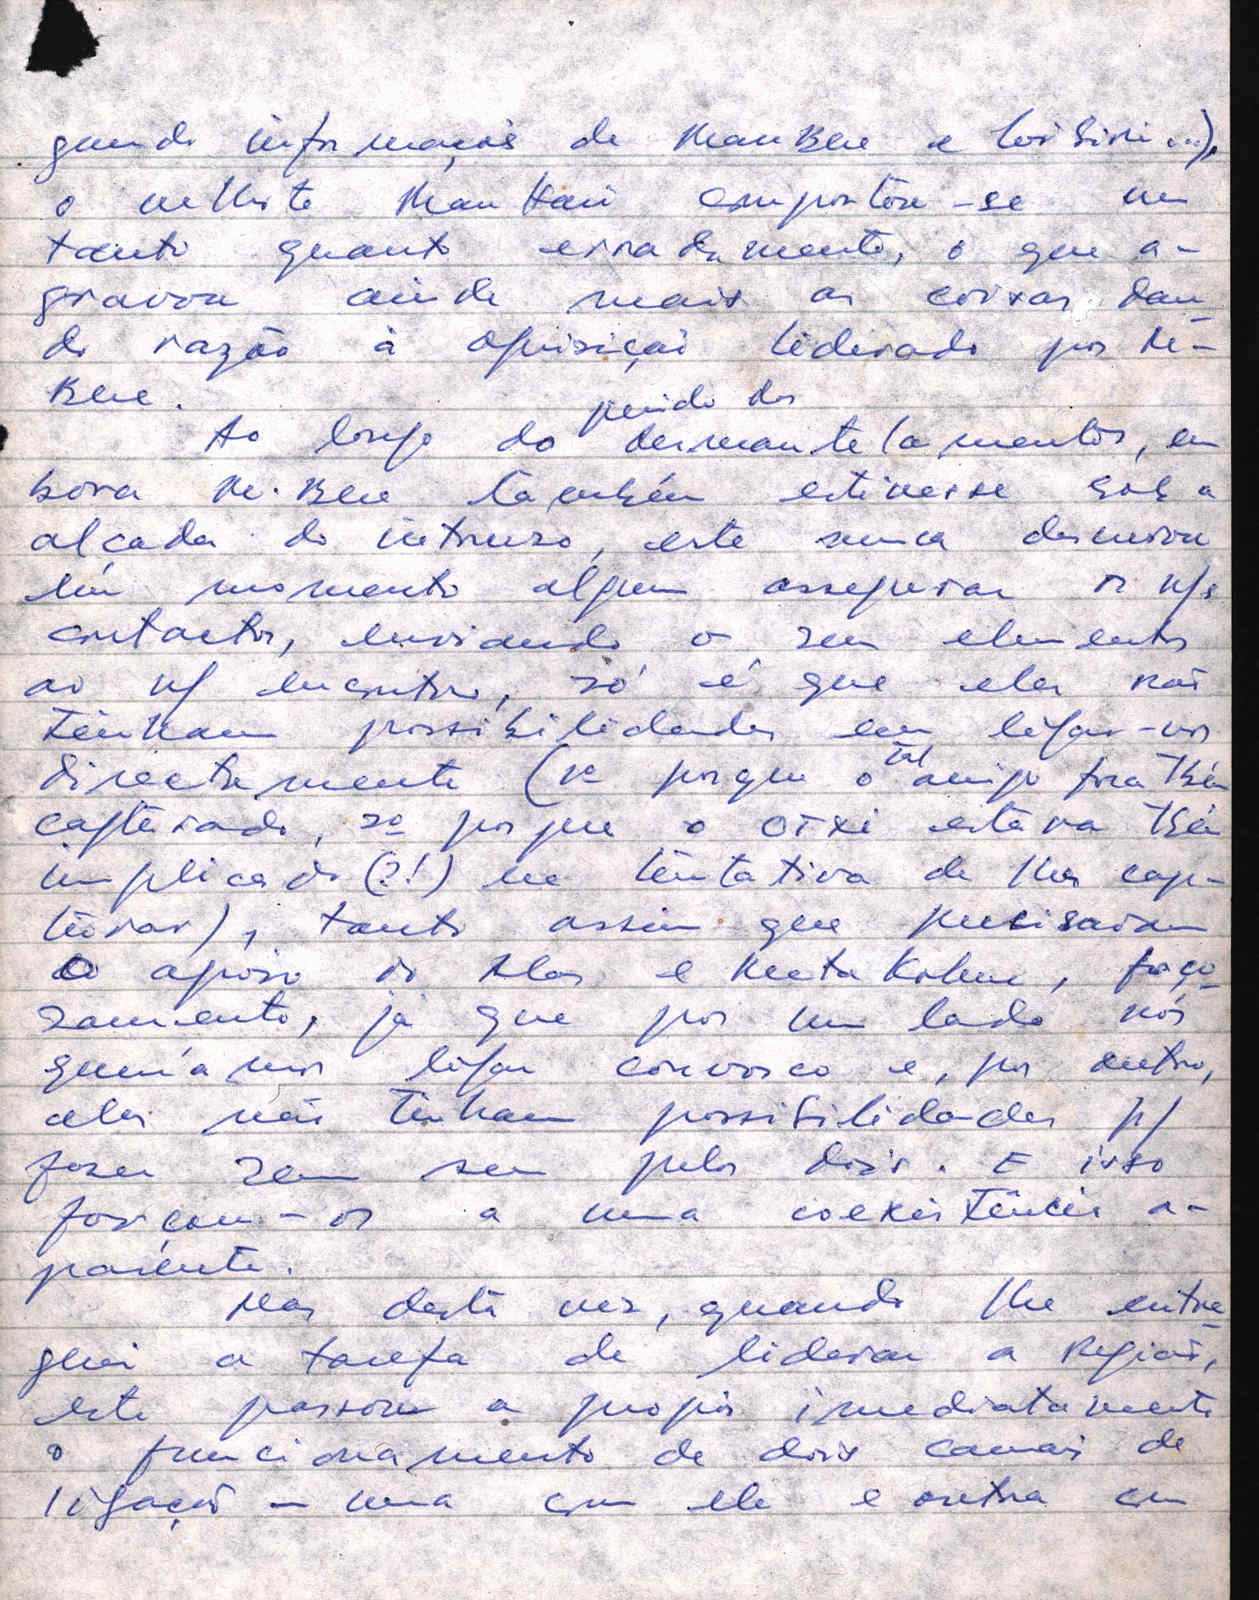 gundo informações de MauBere e Loi Siri...),
o velhote Mau Hani comportou-se um
tanto quanto erradamente, o que a-
gravou ainda mais as coisas dan-
do razão à oposição liderado por M.
Bere.
período dos
Ao longo do desmantelamentos, em
bora M. Bere também estivesse sob a
alçada do intruso, este nunca descurou
em momento algum assegurar os n/s
contactos, enviando o seu elemento
ao n/ encontro, só é que eles não
tinham possibilidades em ligar-vos
directamente (se porque o tal amigo fora tbém
capturado, so porque o OTXI estava tbém
implicado (?!) na tentativa de nos cap-
turar), tanto assim que precisavam
o apoio do Mos e Meta Kohu, força
samente, já que por um lado nós
queríamos ligar convosco e, por outro,
eles não tinham possibilidades p/
fazer sem ser pelos dois. E isso
forçou-os a uma coexistência a-
parente.
Mas desta vez, quando lhe entre-
guei a tarefa de liderar a Região,
este passou a propôr imediatamente
o funcionamento de dois canais de
ligação - uma com ele e outra com